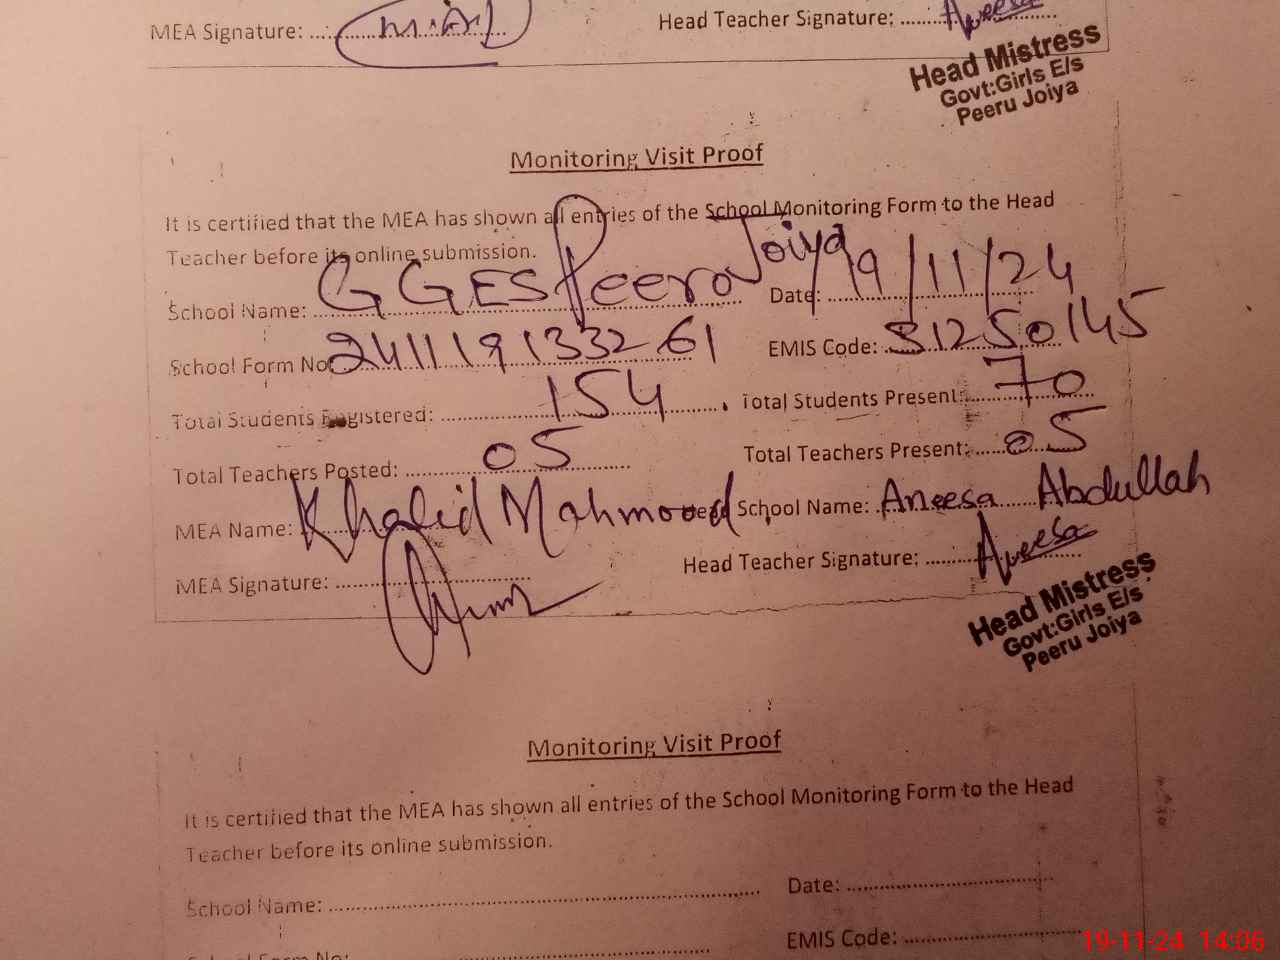 MEA Signature: Head Teacher Signature: Aneesa
Head Mistress
Govt:Girls E/s
Peeru Joiya
Monitoring Visit Proof
It is certified that the MEA has shown all entries of the School Monitoring Form to the Head
Teacher before its online submission.
School Name: GGES Peero Joiya Date: 19/11/24
School Form No: 24111913326 1 EMIS Code: 31250145
Total Students Registered: 154 Total Students Present: 70
Total Teachers Posted: 05 Total Teachers Present: 05
MEA Name: Khalid Mahmood School Name: Aneesa Abdullah
MEA Signature: Head Teacher Signature: Aneesa
Head Mistress
Govt:Girls E/s
Peeru Joiya
Monitoring Visit Proof
It is certified that the MEA has shown all entries of the School Monitoring Form to the Head
Teacher before its online submission.
School Name: Date:
School Form No: EMIS Code:
19-11-24 14:06